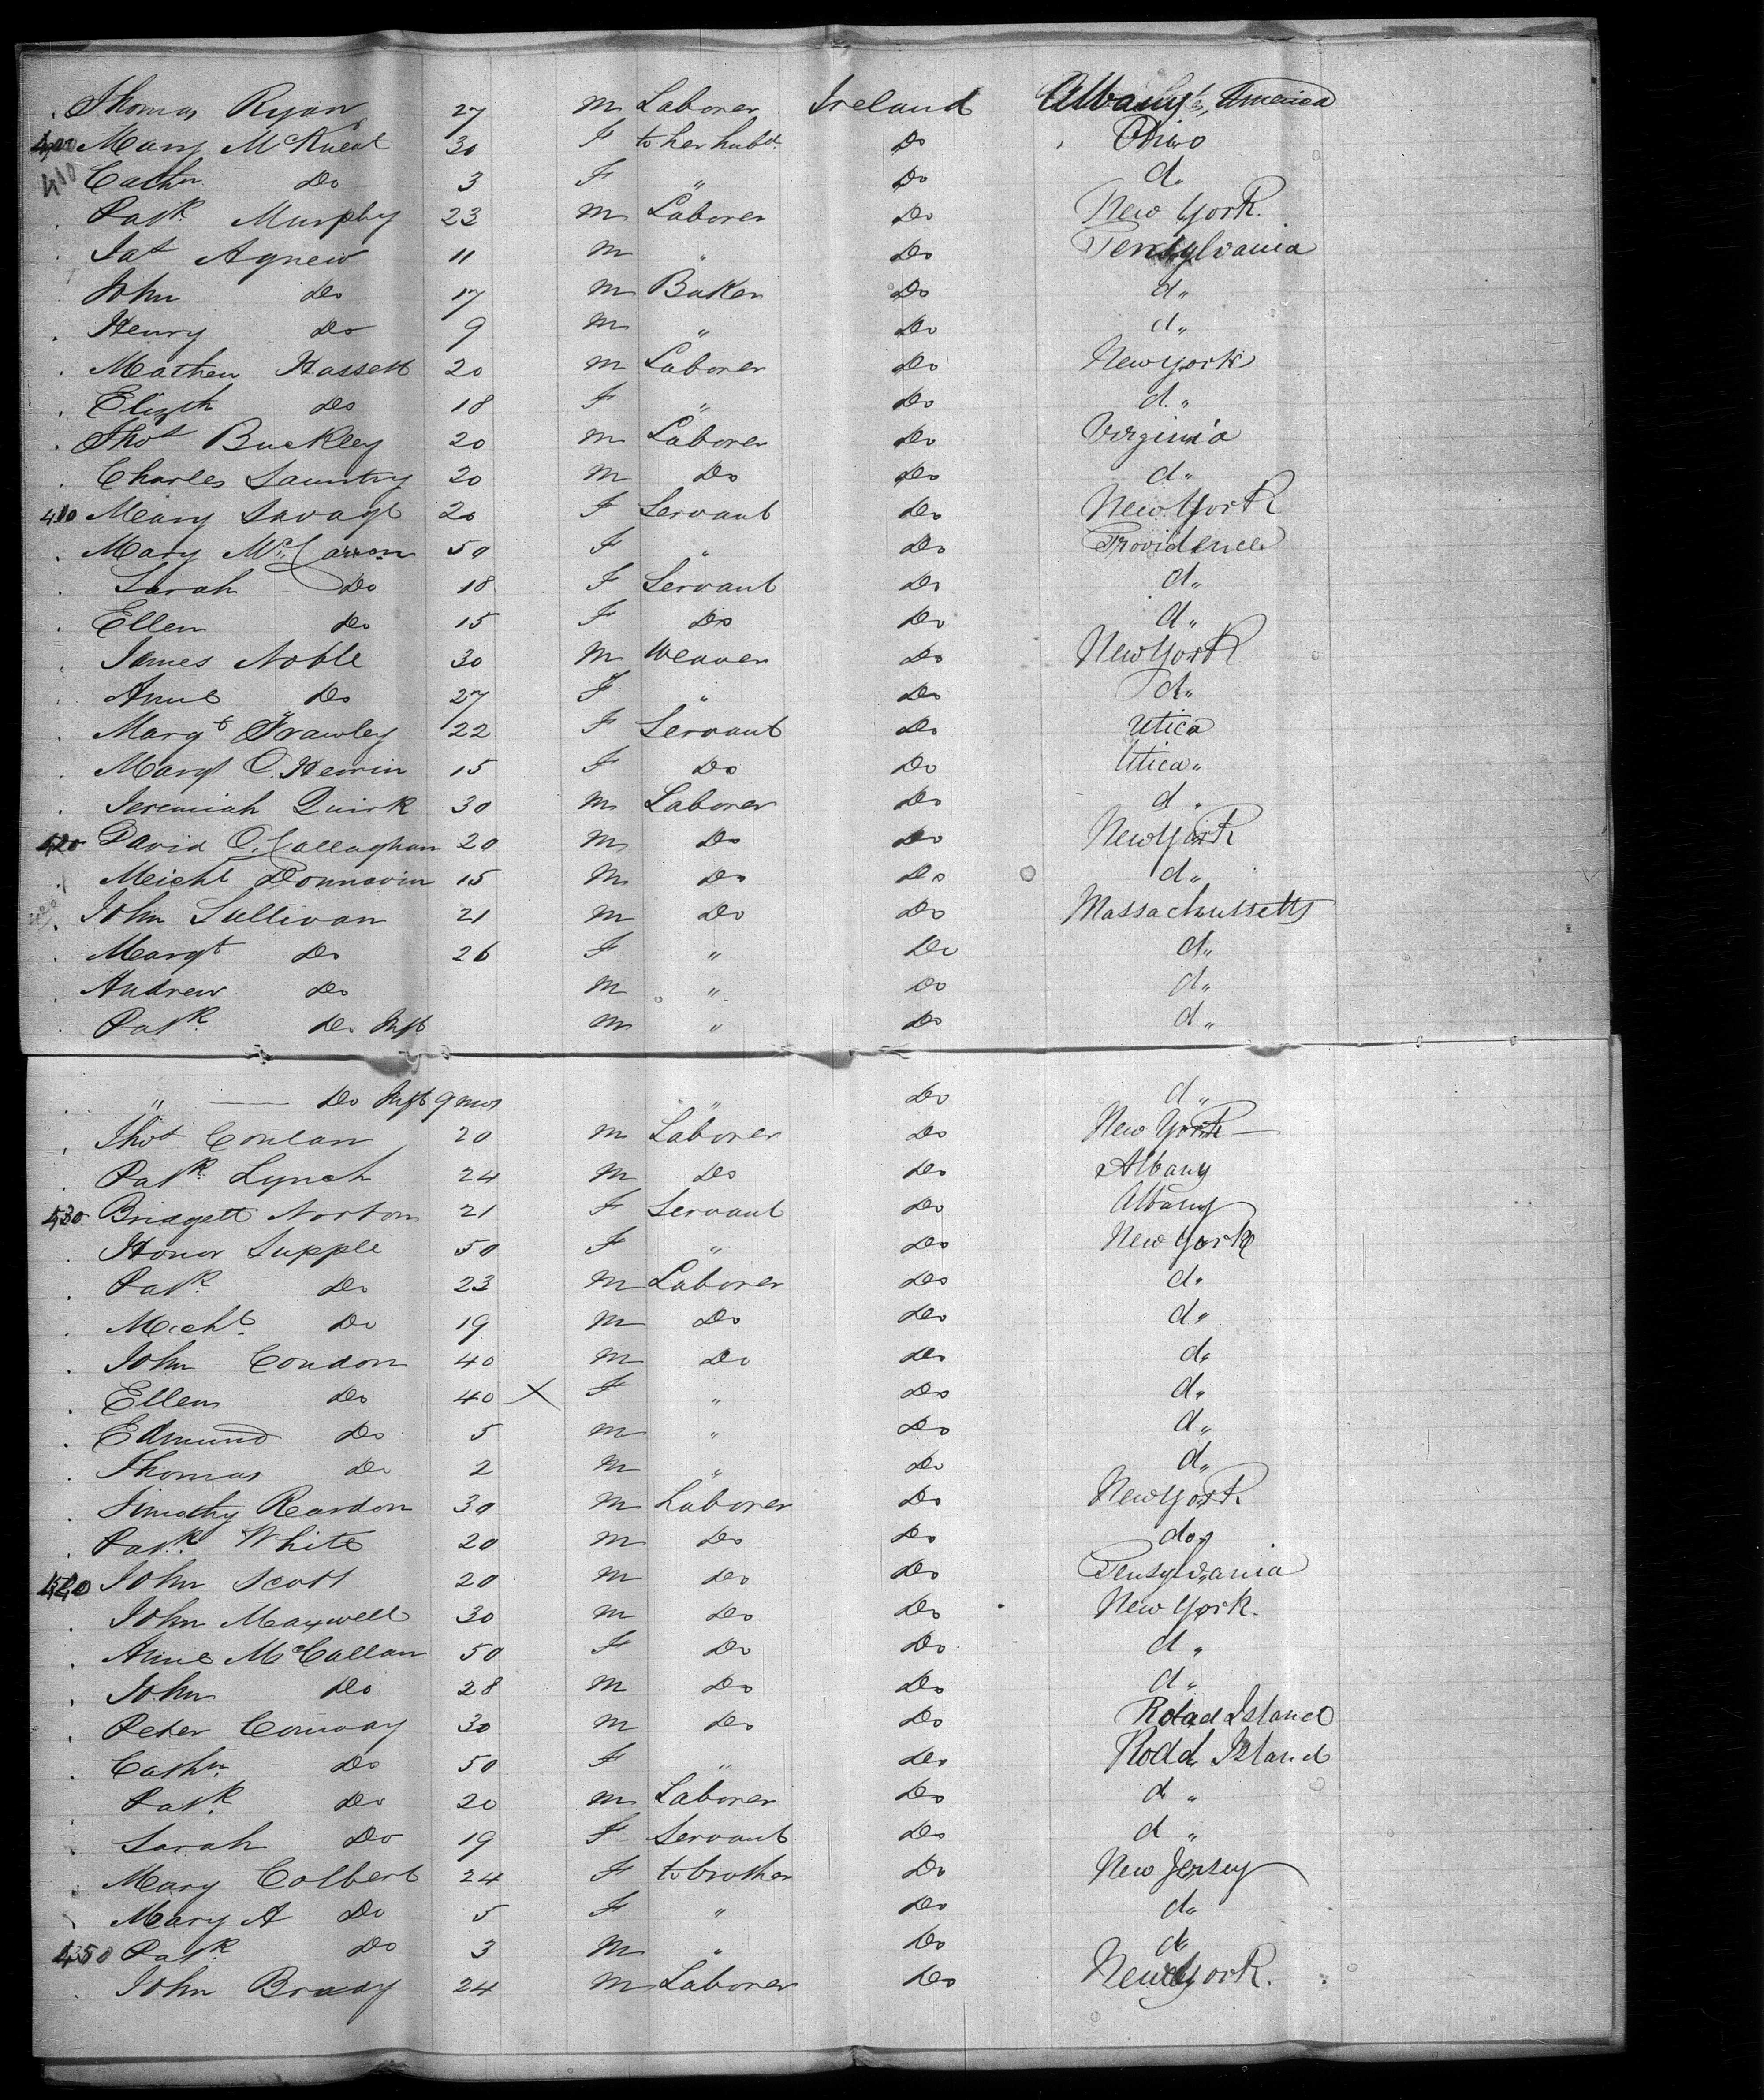 Thomas Ryan 27 M Laborer Ireland Albany, America
Mary McKneal 30 F to her hubd. Do Ohio
410 Cathn. Do 3 F " Do d"
Patk. Murphy 23 M Laborer Do New York.
Jas Agnew 11 M " Do Pensylvania
John Do 17 M Baker Do d"
Henry Do 9 M " Do d"
Mathew Hassett 20 M Laborer Do New York
Elizth Do 18 F " Do d"
Thos Buckley 20 M Laborer Do Virginia
Charles Sauntry 20 M Do Do d"
410 Mary Savage 20 F Servant Do New York
Mary McCarron 50 F " Do Providence
Sarah Do 18 F Servant Do d"
Ellen Do 15 F Do Do d"
James Noble 30 M Weaver Do New York
Anne Do 27 F " Do d"
Margt Frawley 22 F Servant Do Utica
Margt O.Herrin 15 F Do Do Utica"
Jeremiah Quirk 30 M Laborer Do d"
420 David O.Callaghan 20 M Do Do New York
Meichl Donnovin 15 M Do Do d"
420 John Sullivan 21 M Do Do Massachussetts
Margt Do 26 F " Do d"
Andrew Do M " Do d"
Patk. Do Inft M " Do d"
" — Do Inft 9 mos " Do d"
Thos Conlan 20 M Laborer Do New York
Patk. Lynch 24 M Do Do Albany
430 Bridgett Norton 21 F Servant Do Albany
Honor Supple 50 F " Do New York
Patk. Do 23 M Laborer Do d"
Michl. Do 19 M Do Do d"
John Condon 40 M Do Do d"
Ellen Do 40 X F " Do d"
Edmund Do 5 M " Do d"
Thomas Do 2 M " Do d"
Timothy Reardon 30 M Laborer Do New York
Patk. White 20 M Do Do do"
440 John Scott 20 M Do Do Pensylvania
John Maxwell 30 M Do Do New York.
Anne McCallan 50 F Do Do d"
John Do 28 M Do Do d"
Peter Conway 30 M Do Do Island
Cathn. Do 50 F " Do Rodd Island
Patk. Do 20 M Laborer Do d"
Sarah Do 19 F Servant Do d"
Mary Colbert 24 F to brother Do New Jersey
Mary A Do 5 F " Do d"
450 Patk. Do 3 M " Do d"
John Brady 24 M Laborer Do New York.